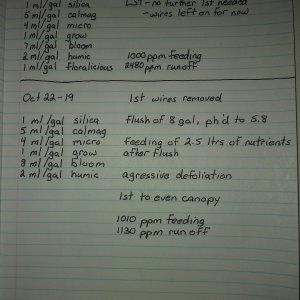 1 ml/gal silica LST - no further lst needed
5 ml/gal calmag - wires left on for now
4 ml/gal micro
1 ml/gal grow
7 ml/gal bloom
2 ml/gal humic 1000 ppm feeding
1 ml/gal floralicious 2480 ppm runoff
Oct 22-19 lst wires removed
1 ml/gal silica flush of 8 gal, ph'd to 5.8
5 ml/gal calmag
4 ml/gal micro feeding of 2.5 ltrs of nutrients
1 ml/gal grow after flush
8 ml/gal bloom
2 ml/gal humic agressive defoliation
lst to even canopy
1010 ppm feeding
1130 ppm run off